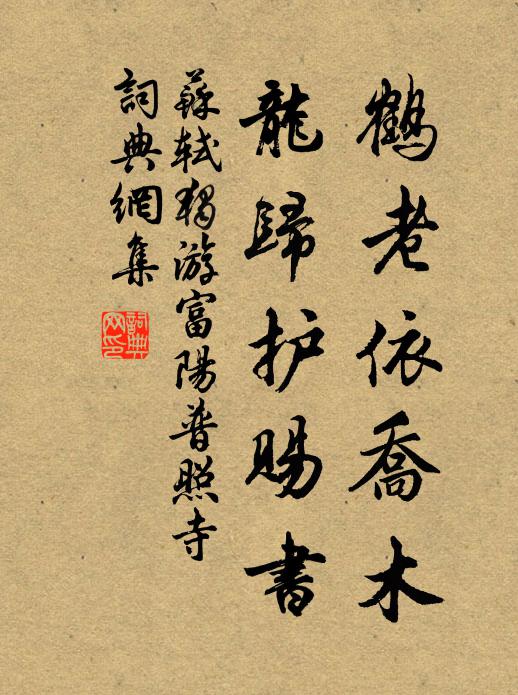 鹤老依喬木
龍歸护賜書
蘇軾獨游富陽普照寺
詞典網集
詞典网印